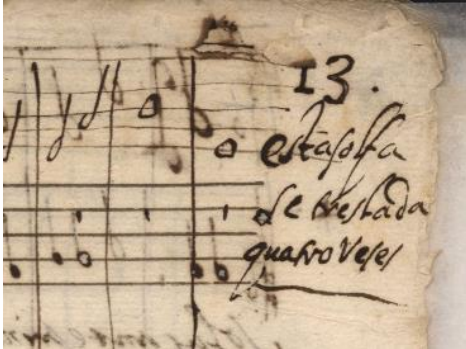 13.
esta solfa
se treslada
quatro veses